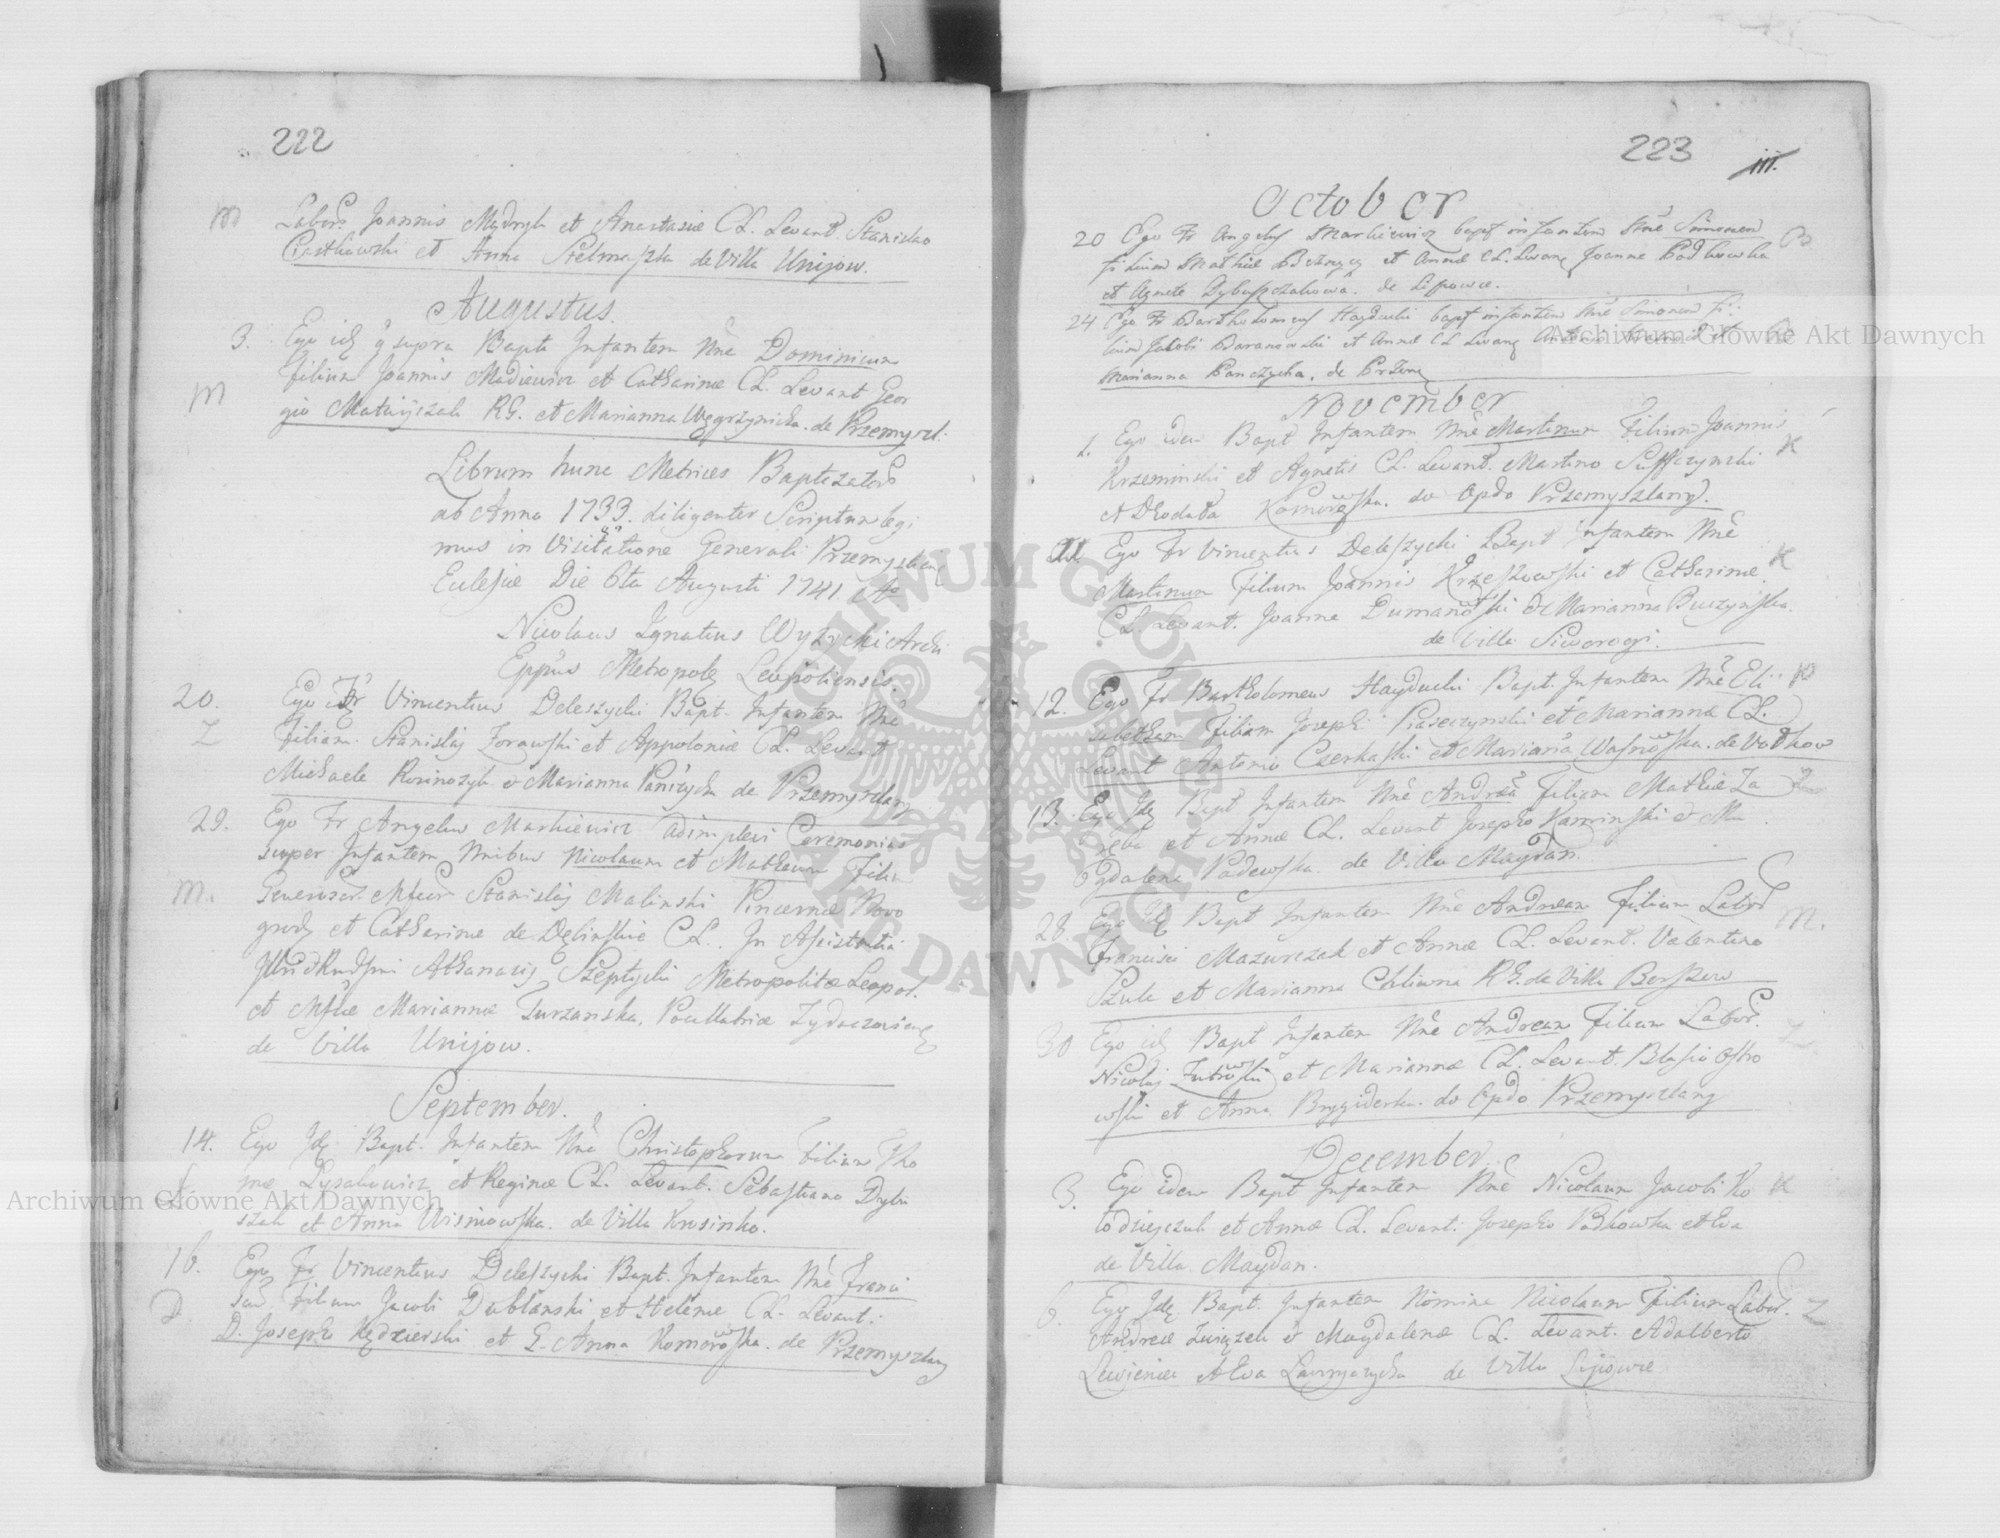 222
M
Labors. Joannis Mądryk et Anastasiæ CL. Levant Stanislao
Piastkowski et Anna Stelmaszka de Villa Unijow.
Augustus.
3. Ego idẽ q̃ supra Bapt. Infantem Nñe Dominicum
M
filium Joannis Madiewicz et Catharinæ CL. Levant Geor
gio Matwijszak RG. et Marianna Węgrzynicka. de Przemyszl.
Librum hunc Metrices Baptizator
ab Anno 1733. diligenter Scriptum legi
mus in Visitatione Generali Przemyslanẽ
Eclesiæ Die 6ta Augusti 1741.
Nicolaus Ignatius Wyżycki Archi
Eppus Metropolẽ Leopoliensis.
20. Ego Fr Vincentius Deleszycki Bapt. Infantem Nñe
Z
Filiam Stanislaj Zorawski et Appoloniæ CL. Levant
Michaele et Marianna Pańczycha de Przemyszlany
29. Ego Fr Angelus Markiewicz adimplevi Ceremonias
super Infantem Nnibus Nicolaum et Matheum filiu
M.
Stanislaj Malinski Pincernæ Novo
grodz et Catharinæ de Dęlinskie CL. In Assistentia
Athanasij Szeptycki Metropolitæ Leopol.
et Marianna Turzanska, Żydaczoviensẽ
de Villa Unijow.
September.
14. Ego Idẽ Bapt. Infantem Nñe Christophorum filium Tho
mæ Lysakowicz et Reginæ CL. Levant. Sebastiano Dybu
szak et Anna Wisniowska. de Villa Krosinko.
16. Ego Fr Vincentius Deleszycki Bapt. Infantem Nñe Franci
D
scũ filium Jacobi Dublanski et Helenæ CL. Levant:
D. Josepho Kędzierski et G. Anna Komorowska. de Przemyszlany
223
111.
October
20 Ego Fr Angelus Markiewicz bapt infantem Nñe Simonem
filium Mathiæ et Annæ CL. Levanẽ Joanne Podkowka
et Agnete Dybuszczakowa. de Lipowce.
24 Ego Fr Bartholomeus Hayducki bapt infantem Nñe Simonem fi:
lium Jakobi Baranowski et Annæ CL Levanẽ
Marianna Panczycha, de Przem
November
1. Ego idem Bapt Infantem Nñe Martinum Filium Joannis
K
Krzeminski et Agnetis CL. Levant. Martino Suffczynski
et Komorowska. de Opdo Przemyszlany.
11 Ego Fr Vincentius Deleszycki Bapt Infantem Nñe
K
Martinum Filium Joannis Krzeszowski et Catharinæ
CL Levant. Joanne Dumanowski et Marianna Buczynska.
de Villa Siworogi.
12. Ego Fr Bartholomeus Hayducki Bapt. Infantem Nñe Eli
P
sabetham Filiam Josephi Piaseczynski et Mariannæ CL.
Levant Antonio Czerkaski et Marianna Wasnowska. de Vodkow
13. Ego Idẽ Bapt Infantem Nñe Andreã Filium Mathiæ Za
Z
ręba et Annæ CL. Levant Josepho Kaminski et Ma
gdalena Padewska. de Villa Maydan.
28. Ego Idẽ Bapt Infantem Nñe Andream Filium Labor
M.
Francisci Mazurczak et Annæ CL. Levant. Valentino
Szulc et Marianna Chliwna RG. de Villa Borszow
30 Ego idẽ Bapt Infantem Nñe Andream Filium Labor.
Z
Nicolaj Zutrowski et Mariannæ CL. Levant. Blasio Ostro
wski et Anna Brygiderka. de Opdo Przemyszlany
December
3. Ego idem Bapt Infantem Nñe Nicolaum Jacobi Ko
K
lodziejczak et Annæ CL. Levant. Josepho Podkowka et Eva
de Villa Maydan.
6. Ego Idẽ Bapt. Infantem Nomine Nicolaum Filium Labor.
Z
Andreæ Związek et Magdalenæ CL. Levant. Adalberto
et Eva Lawryszycha de Villa Lipowce
Archiwum Główne Akt Dawnych
Archiwum Główne Akt Dawnych
ARCHIWUM GŁÓWNE AKT DAWNYCH